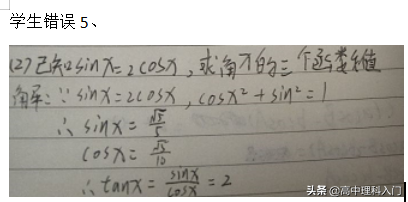 学生错误5、
(2)已知2sinx=2cosx，求角x的三个函数值
解：∵sinx=2cosx，cosx²+sin²=1
∴ sinx=√5/5
cosx=√5/10
∴tanx=sinx/cosx=2
头条@高中理科入门